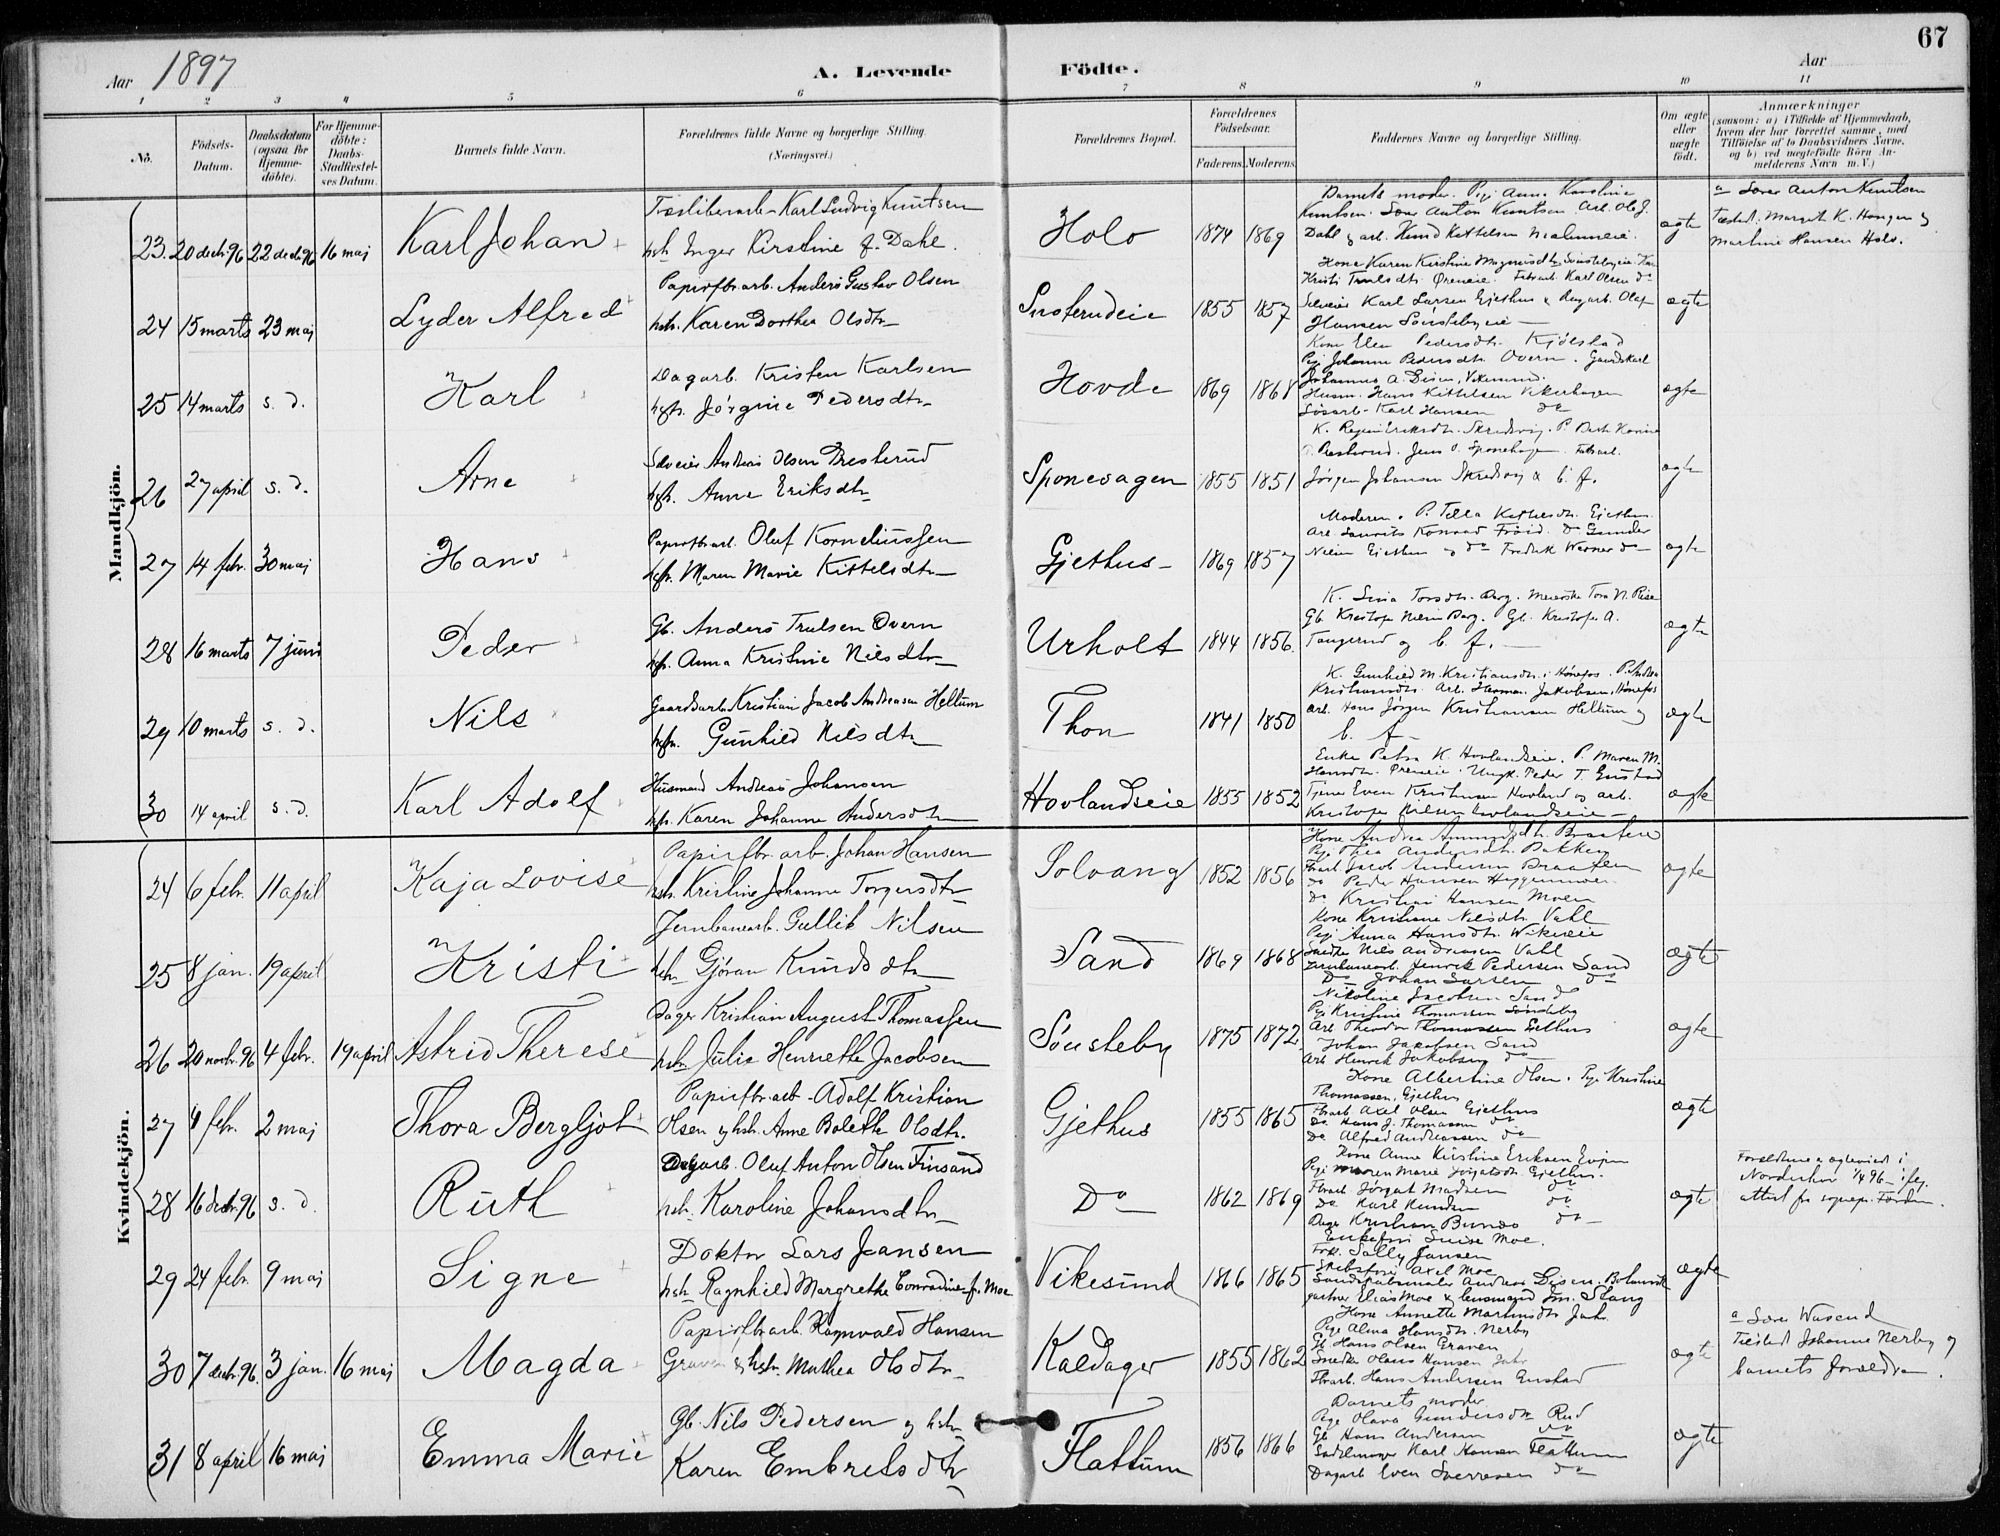 67
Aar 1897 A. Levende Födte. Aar
1 2 3 4 5 6 7 8 9 10 11
No.
Födsels-Datum.
Daabsdatum (ogsaa for Hjemme-döbte).
For Hjemme-döbte: Daabs-Stadfæstel-ses Datum.
Barnets fulde Navn.
Forældrenes fulde Navne og borgerlige Stilling.
(Næringsvei.)
Forældrenes Bopæl.
Forældrenes Födselsaar.
Faderens. Moderens.
Faddernes Navne og borgerlige Stilling.
Om ægte eller uægte födt.
Anmærkninger
(saasom: a) i Tilfælde af Hjemmedaab,
hvem der har forrettet samme, med
Tilföielse af to Daabsvidners Navne,
og b) ved uægtefödte Börn An-
melderens Navn m. V.)
Mandkjön.
23. 20 decbr. 96 22 decb 96 16 maj Karl Johan
Karl Ludvig Knutsen
hsh Inger Kirstine f. Dahl.
Holo 1874 1869
Barnets moder. Pige Anne Karoline
Knutsen. Anton Knutsen. Arb. Ole J.
Dahl & arb. Knud Kittelsen
ægte
a Anton Knutsen
Margit K. Haugen &
Martine Hansen Holo.
24 15 marts 23 maj Lyder Alfred
Papirfbr.arb. Anders Gustav Olsen
hstr. Karen Dorthea Olsdtr
1855 1857
Kone Karen Kirstine
Kristi Trulsdtr Øreneie. Fabr.arb. Karl Olsen do
Selveier Karl Larsen Gjethus & Olaf
Hansen Sönstebyeie
ægte
25 14 marts s. d. Karl
Dagarb. Kristen Karlsen
hstr. Jørgine Pedersdtr
Hovde 1869 1868
Kone Elen Pedersdtr. Kjölstad
Pige Johanne Pedersdtr Overn. Gaardskarl
Johannes A. Disen, Vikesund.
Husm. Hans Kittilsen Vikerhagen
Karl Hansen do
ægte
26 27 april s. d. Arne
Selveier Andreas Olsen Presterud
hstr. Anne Eriksdtr
Sponevagen 1855 1851
Jens O. Sponehagen. Fabr.arb.
Jørgen Johansen Skredsvig & b. f.
ægte
27 14 febr. 30 maj Hans
Papirfbr.arb. Oluf Korneliussen
hstr. Maren Marie Kittelsdtr
Gjethus 1869 1857
Moderen. P. Kittelsdtr. Gjethus
Arb. Laurits Konrad Do Gunder
Nilsen Gjethus & do Fredrik Werner do
ægte
28 16 marts 7 juni Peder
Gb. Anders Trulsen Overn
hstr. Anna Kristine Nilsdtr
Urholt 1844 1856.
Gb. Kristofer A.
Tangerud og b. f.
ægte
29 10 marts s. d. Nils
Gaardsarb. Kristian Jacob Andreasen Hellum
hstr. Gunhild Nilsdtr
Thon 1841 1850
K. Gunhild M. Kristiansdtr. i Hønefos. P. Andrea
Kristiansdtr Arb. Herman Jakobsen, Hönefos
Arb. Hans Jørgen Kristiansen Hellum og
b. f.
ægte
30 14 april s. d. Karl Adolf
Husmand Andreas Johansen
hstr. Karen Johanne Andersdtr
Hovlandseie 1855 1852
Enke Petra K. Hovlandseie. P. Maren M.
Hansdtr. Øreneie. Ungk. Peder T. Enstad
Tjener Even Kristensen Hovland og arb.
Kristofer Nilsen Hovlandseie
ægte
Kvindekjön.
24 6 febr. 11 april Kaja Lovise
Papirfbr.arb. Johan Hansen
hstr. Kristine Johanne Torgersdtr
Solvang 1852 1856
Kone Andrea Amundsdtr Braaten
Pige Thea Andersdtr. Bakken
Fbarb. Jacob Andersen Braaten
do Peder Hansen Heggenmoen
do Kristian Hansen Moen
ægte
25 8 jan. 19 april Kristi
Jernbanearb. Gullik Nilsen
hstr Gjøran Knudsdtr
Sand 1869 1868
Kone Kristiane Nilsdtr. Vahl
Pige Anna Hansdtr. Vikeseie
Smedm. Nils Andreasen Vahl
Jernbanearb. Henrik Pedersen Sand
Do Johan Larsen do
ægte
26 20 novbr. 96 4 febr. 19 april Astrid Therese
Bager Kristian August Thomassen
hstr. Julie Henriette Jacobsen
Sönsteby 1875 1872.
Nikoline Jacobsen Sand
Pige Kristine Thomassen Sönsteby
Arb Theodor Thomassen Gjethus
Johan Jakobsen Sand
Arb Henrik Jakobsen do
ægte
27 4 febr. 2 maj Thora Bergljot
Papirfbr.arb. Adolf Kristian
Olsen & hstr. Anne Bolette Olsdtr.
Gjethus 1855 1865
Kone Albertine Olsen. Pige Kristine
Thomassen, Gjethus
Fbarb. Axel Olsen Gjethus
Do Hans J. Thomassen do
Do Alfred Andreassen do
ægte
28 16 decbr. 96 s. d. Ruth
Dagarb. Oluf Anton Olsen Finsand
hstr. Karoline Johansdtr
Do 1862 1869
Kone Anne Kirstine Eriksen Evjen
Pige Maren Marie Gjethus.
Fbarb. Madsen do
Do Karl Knudsen do
Kristian Bundo do
ægte
Forældrene ægteviet i
Norderhov 1/4 96
attest fra sognepr.
29 24 febr. 9 maj Signe
Doktor Lars Jansen
hstr Ragnhild Margrethe Conradine f. Moe
Vikesund 1866 1865
Enkefru Moe.
Frk. Sally Jansen
Axel Moe
Landskabsmaler Andreas Disen.
gartner Elias Moe & lensmand Slang
ægte
30 7 decbr. 96. 3 jan. 16 maj Magda
Papirfbr.arb. Ragnvald Hansen
Graven & hstr. Mathea Olsdtr.
Kaldager 1855 1862
Kone Annette Martinsdtr
Pige Alma Hansdtr. Nerby
Gb Hans Olsen Graven
Smedm Olaus Hansen
Fbarb. Hans Andersen Enstad
ægte
Johanne Nerby &
barnets forældre.
31 8 april 16 maj Emma Marie
Gb. Nils Pedersen & hstr
Karen Embretsdtr
Flattum 1856 1866
Barnets moder
Pige Olava Gundersdtr Rud
Gb Hans Andersen do
Sadelmager Karl Hansen Flattum
Dagarb Even Sverresen do
ægte